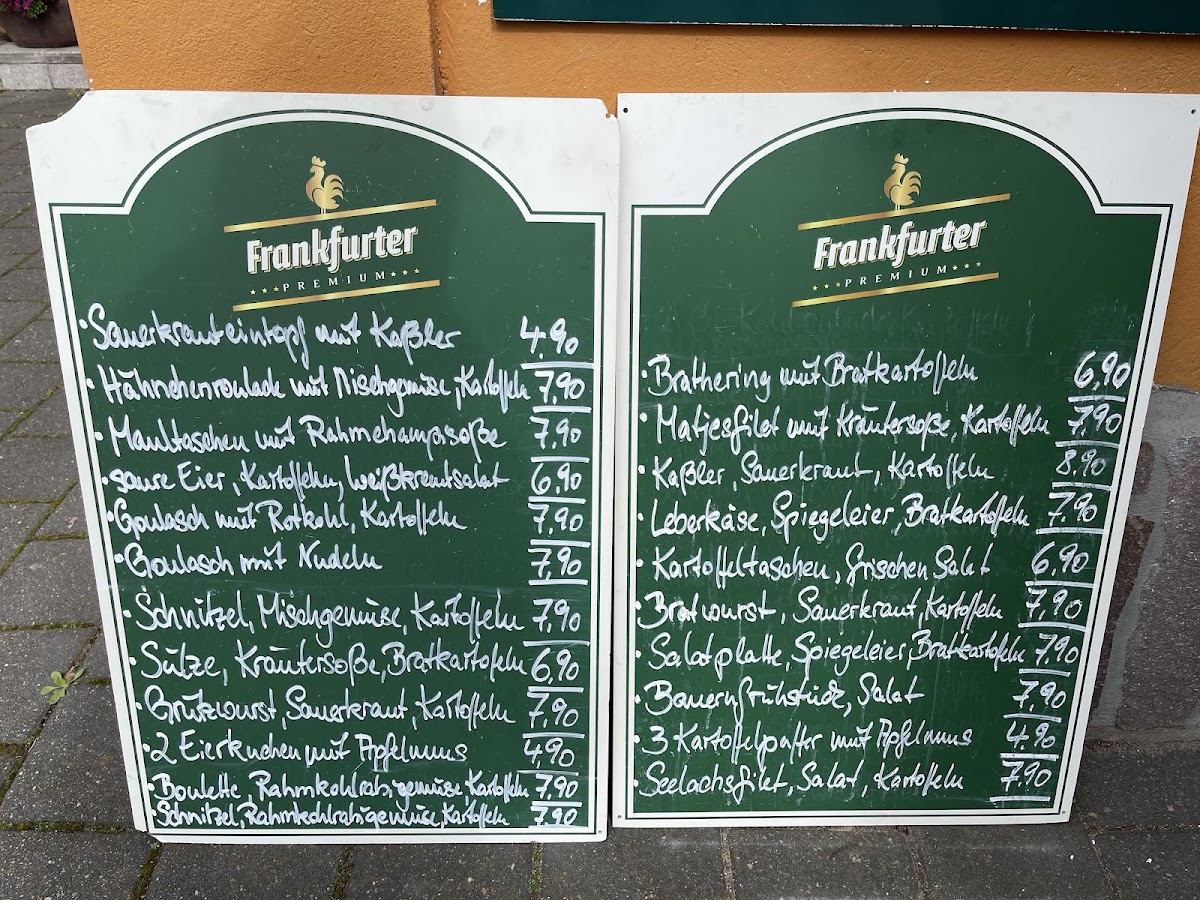 Frankfurter
PREMIUM
· Sauerkrauteintopf mit Kaßler 4,90
· Hähnchenroulade mit Mischgemüse, Kartoffeln 7,90
· Maultaschen mit Rahmchampsoße 7,90
· saure Eier, Kartoffeln, Weißkrautsalat 6,90
· Goulasch mit Rotkohl, Kartoffeln 7,90
· Goulasch mit Nudeln 7,90
· Schnitzel, Mischgemüse, Kartoffeln 7,90
· Sülze, Kräutersoße, Bratkartofeln 6,90
· Grützwurst, Sauerkraut, Kartoffeln 7,90
· 2 Eierkuchen mit Apfelmus 4,90
· Boulette, Rahmkohlrabigemüse Kartoffeln 7,90
· Schnitzel, Rahmkohlrabigemüse, Kartoffeln 7,90
Frankfurter
PREMIUM
· Brathering mit Bratkartoffeln 6,90
· Matjesfilet mit Kräutersoße, Kartoffeln 7,90
· Kaßler, Sauerkraut, Kartoffeln 8,90
· Leberkäse, Spiegeleier, Bratkartoffeln 7,90
· Kartoffeltaschen, frischen Salat 6,90
· Bratwurst, Sauerkraut, Kartoffeln 7,90
· Salatplatte, Spiegeleier, Bratkartoffeln 7,90
· Bauernfrühstück, Salat 7,90
· 3 Kartoffelpuffer mit Apfelmus 4,90
· Seelachsfilet, Salat, Kartoffeln 7,90